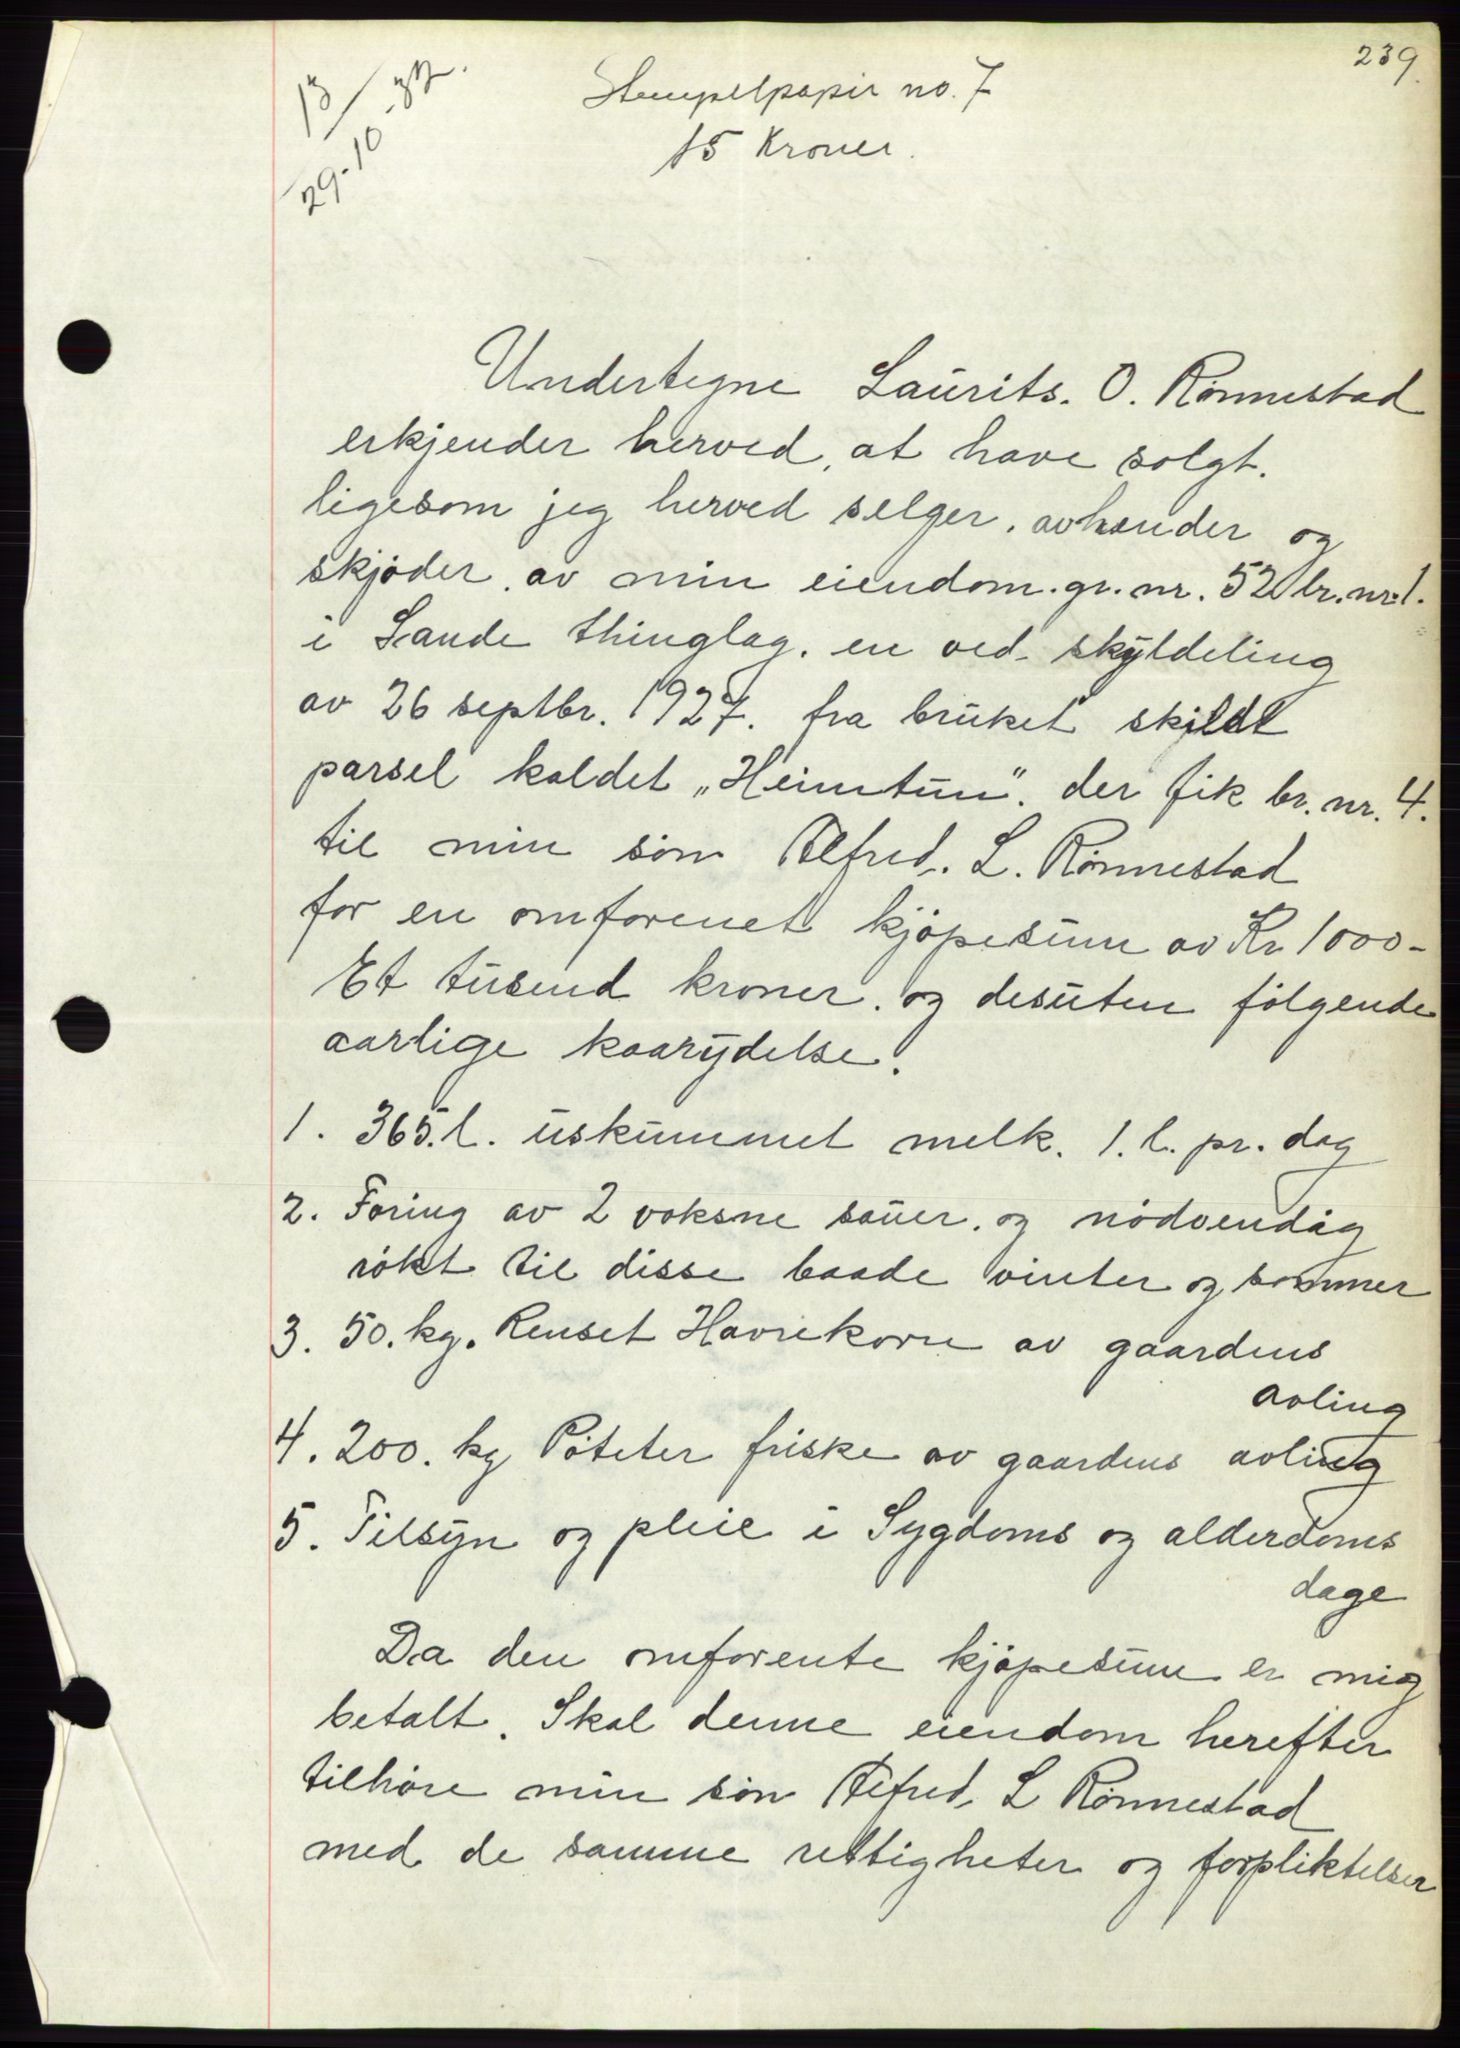 239.
13/29-10-32.
Stempelpapir no. 7
15 Kroner.
Undertegne Laurits. O. Rönnestad
erkjender herved, at have solgt.
ligesom jeg herved selger, avhænder og
skjöder, av min eiendom. gr. nr. 52 br. nr. 1.
i Sande thinglag. en ved skyldeling
av 26 septbr. 1927. fra bruket skjldt
parsel kaldet „Heimtun". der fik br. nr. 4.
til min sön Alfred. L. Rönnestad
for en omforenet kjöpesum av Kr 1000-
Et tusend kroner. og desuten fölgende
aarlige kaarydelse.
1. 365. l. uskummet melk. 1. l. pr. dag
2. Foring av 2 voksne sauer. og nödvendig
rökt til disse baade vinter og sommer
3. 50. kg. Renset Havrekorn av gaardens
avling
4. 200. kg Poteter friske av gaardens avling
5. Tilsyn og pleie i Sygdoms og alderdoms
dage
Da den omforente kjöpesum er mig
betalt. Skal denne eiendom herefter
tilhöre min sön Alfred. L Rönnestad
med de samme rettigheter og forpliktelser